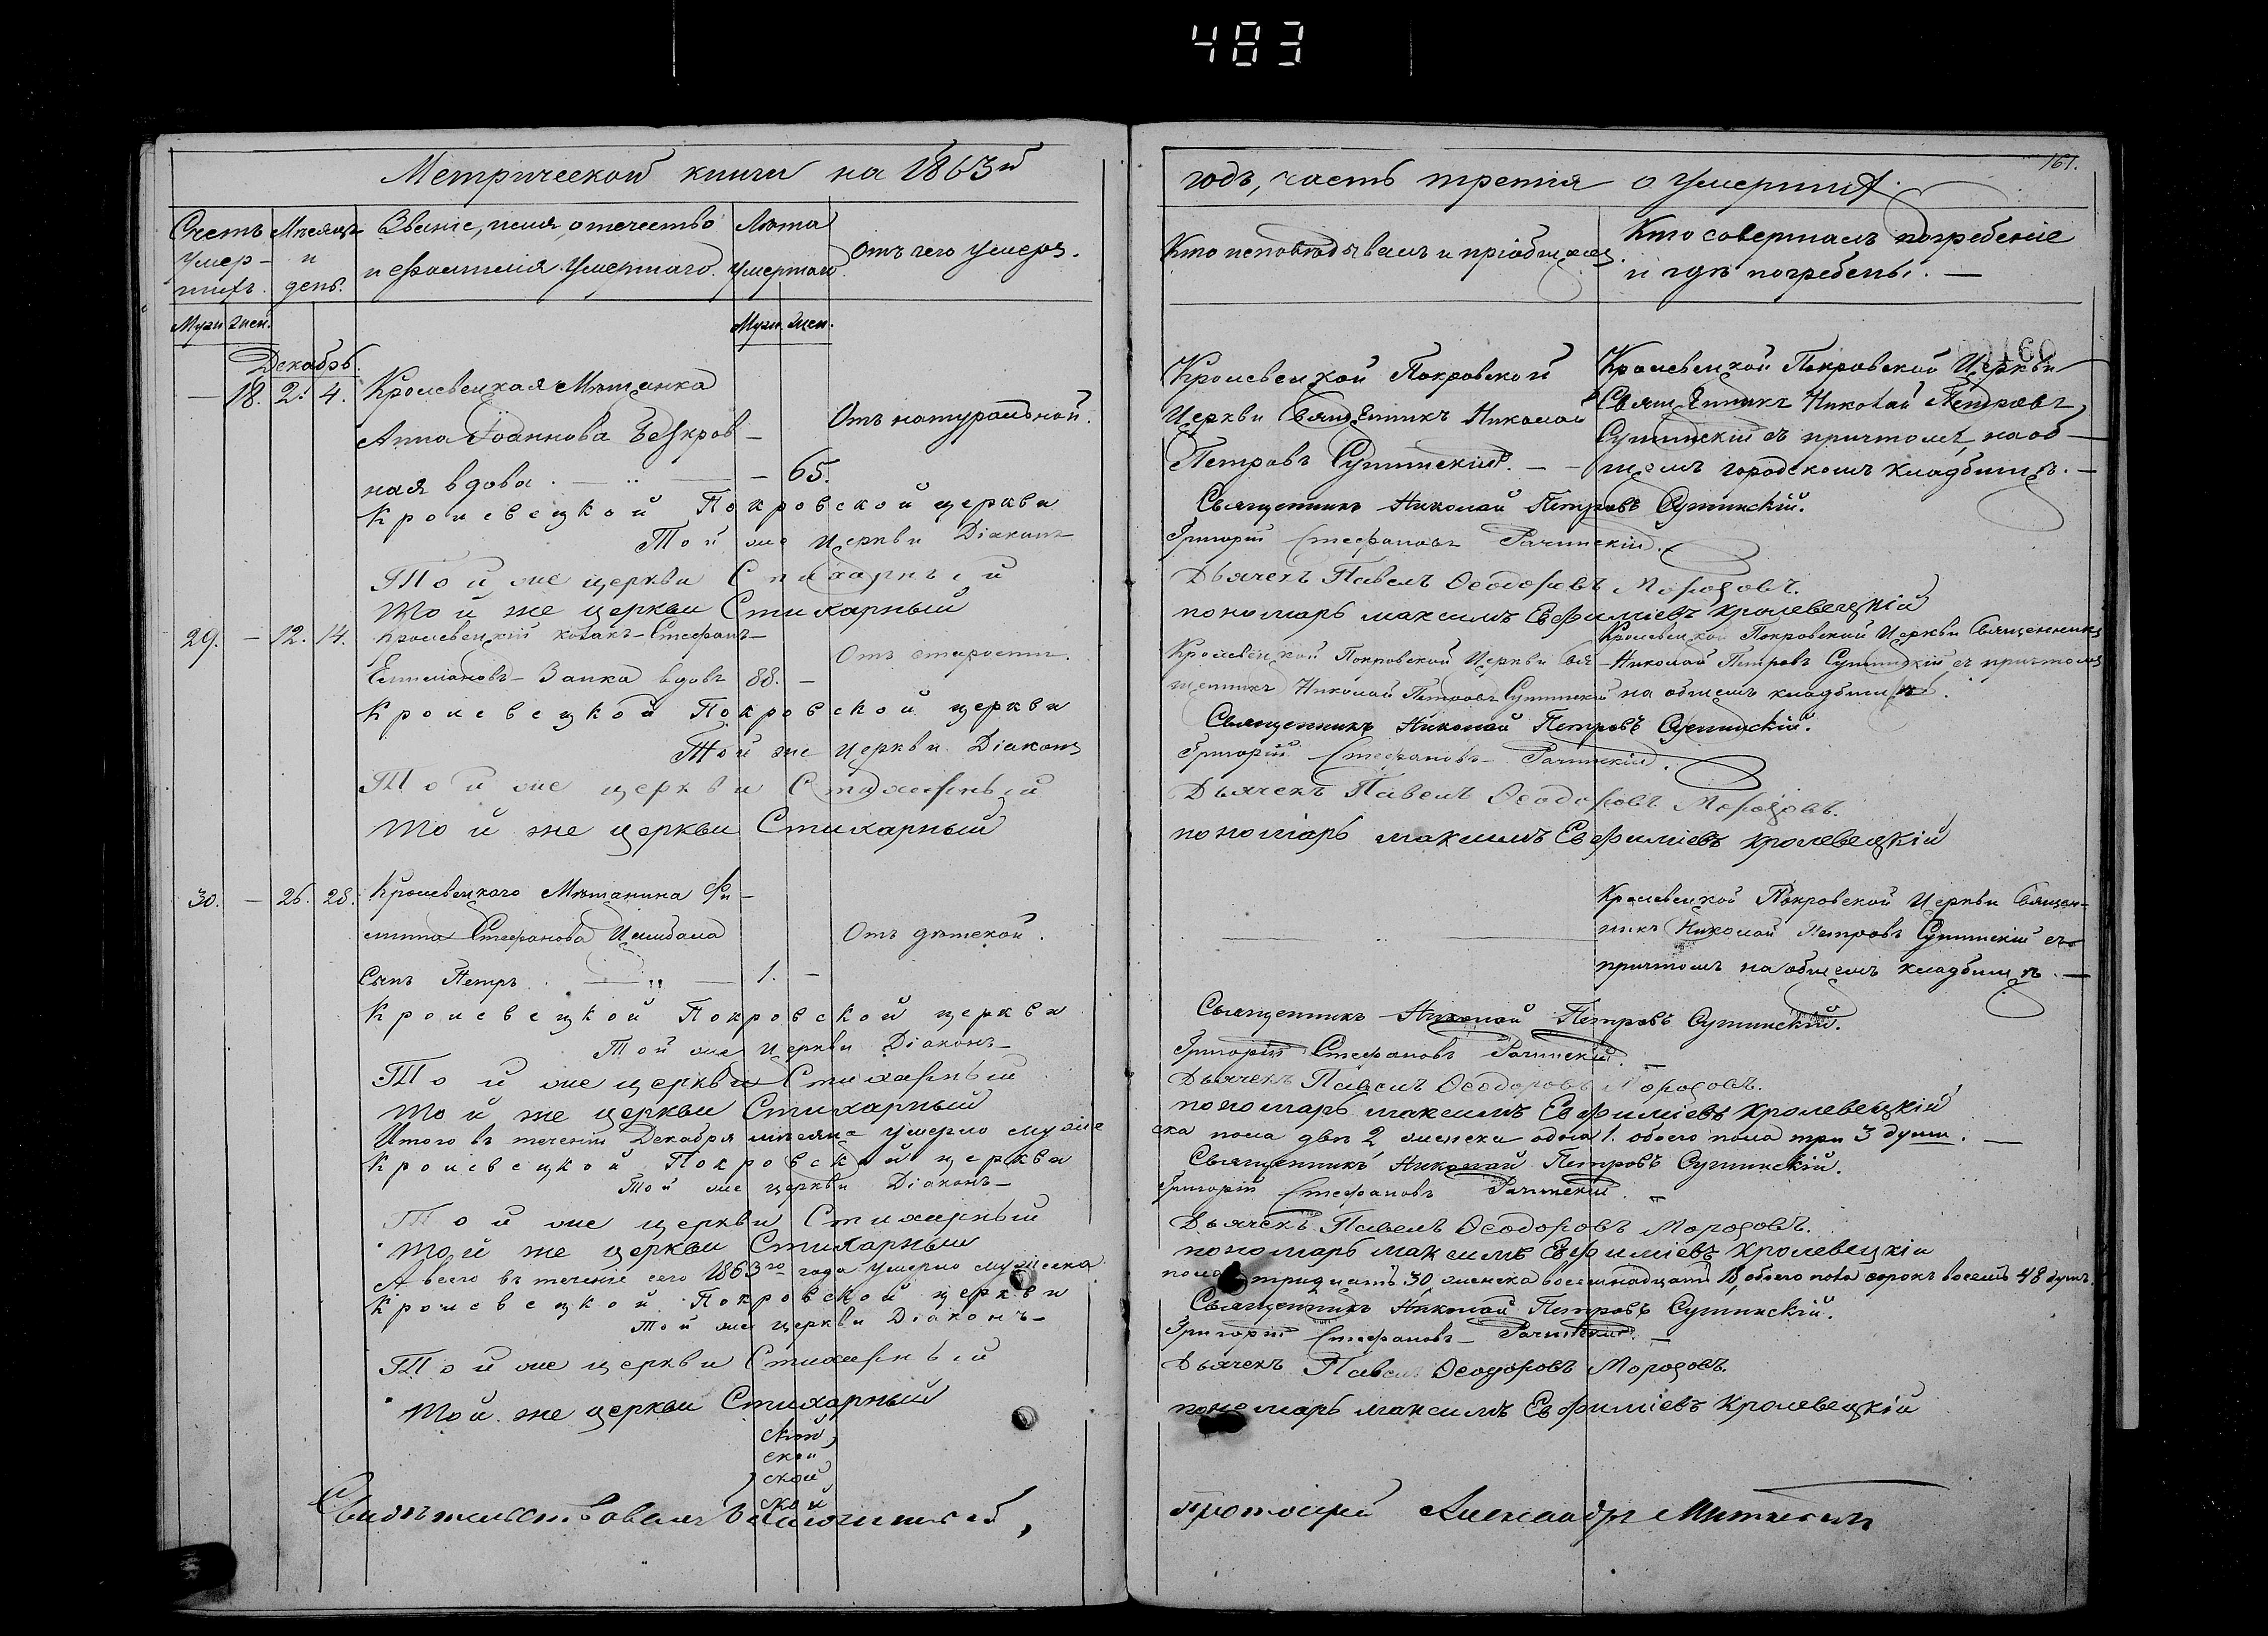 483
Метрической книги на 1863й
годъ, часть третія о умершихъ.
161.
Счетъ умер-шихъ.
Мѣсяцъ и день.
Званіе, имя, отечество и фамилія умершаго.
Лѣта умершаго.
Отъ чего умеръ.
Кто исповѣдывалъ и пріобщалъ.
Кто совершалъ погребеніе и гдѣ погребены. —
Муж. Жен.
Муж. Жен.
00160
Декабрь.
— 18. 2. 4. Кролевецкая Мѣщанка
Анна Іоаннова Безкров-
ная вдова. — — 65.
Отъ натуральной.
Кролевецкой Покровской
Церкви Священникъ Николай
Петровъ Сушинскій. —
Кролевецкой Покровской Церкви
Священникъ Николай Петровъ
Сушинскій съ причтомъ, на об-
щемъ городскомъ кладбищѣ. —
Кролевецкой Покровской церкви Священникъ Николай Петровъ Сушинскій.
Той же Церкви Діаконъ Григорій Стефановъ Рачинскій.
Той же церкви Стихарный Дьячекъ Павелъ Ѳеодоровъ Морозовъ.
Той же церкви Стихарный пономарь максимъ Евфиміевъ кролевецкій
29. — 12. 14. Кролевецкій козакъ Стефанъ
Емиліановъ Заика вдовъ 88. —
Отъ старости.
Кролевецкой Покровской Церкви Свя-
щенникъ Николай Петровъ Сушинскій
Кролевецкой Покровской Церкви Священникъ
Николай Петровъ Сушинскій съ причтомъ
на общемъ кладбищѣ.
Кролевецкой Покровской церкви Священникъ Николай Петровъ Сушинскій.
Той же Церкви Діаконъ Григорій Стефановъ Рачинскій.
Той же церкви Стихарный Дьячекъ Павелъ Ѳеодоровъ Морозовъ.
Той же церкви Стихарный пономарь максимъ Евфиміевъ кролевецкій
30. — 26. 28. Кролевецкаго Мѣщанина Фи-
липпа Стефанова Цымбала
сынъ Петръ. — 1. —
Отъ дѣтской.
Кролевецкой Покровской Церкви Священ-
никъ Николай Петровъ Сушинскій съ
причтомъ на общемъ кладбищѣ. —
Кролевецкой Покровской церкви Священникъ Николай Петровъ Сушинскій.
Той же Церкви Діаконъ Григорій Стефановъ Рачинскій.
Той же церкви Стихарный Дьячекъ Павелъ Ѳеодоровъ Морозовъ.
Той же церкви Стихарный пономарь максимъ Евфиміевъ кролевецкій
Итого въ теченіи Декабря мѣсяца умерло мужеска пола два 2 женска одна 1. обоего пола три 3 души. —
Кролевецкой Покровской церкви Священникъ Николай Петровъ Сушинскій.
Той же церкви Діаконъ Григорій Стефановъ Рачинскій.
Той же церкви Стихарный Дьячекъ Павелъ Ѳеодоровъ Морозовъ.
Той же церкви Стихарный пономарь максимъ Евфиміевъ кролевецкій
А всего въ теченіе сего 1863го года умерло мужеска пола тридцать 30 женска восемнадцать 18, обоего пола сорокъ восемь 48 душъ.
Кролевецкой Покровской церкви Священникъ Николай Петровъ Сушинскій.
Той же церкви Діаконъ Григорій Стефановъ Рачинскій. —
Той же церкви Стихарный Дьячекъ Павелъ Ѳеодоровъ Морозовъ.
Той же церкви Стихарный пономарь максимъ Евфиміевъ Кролевецкій
ской
ской
ской
Свидѣтельствовалъ Благочинный, протоіерей Александръ